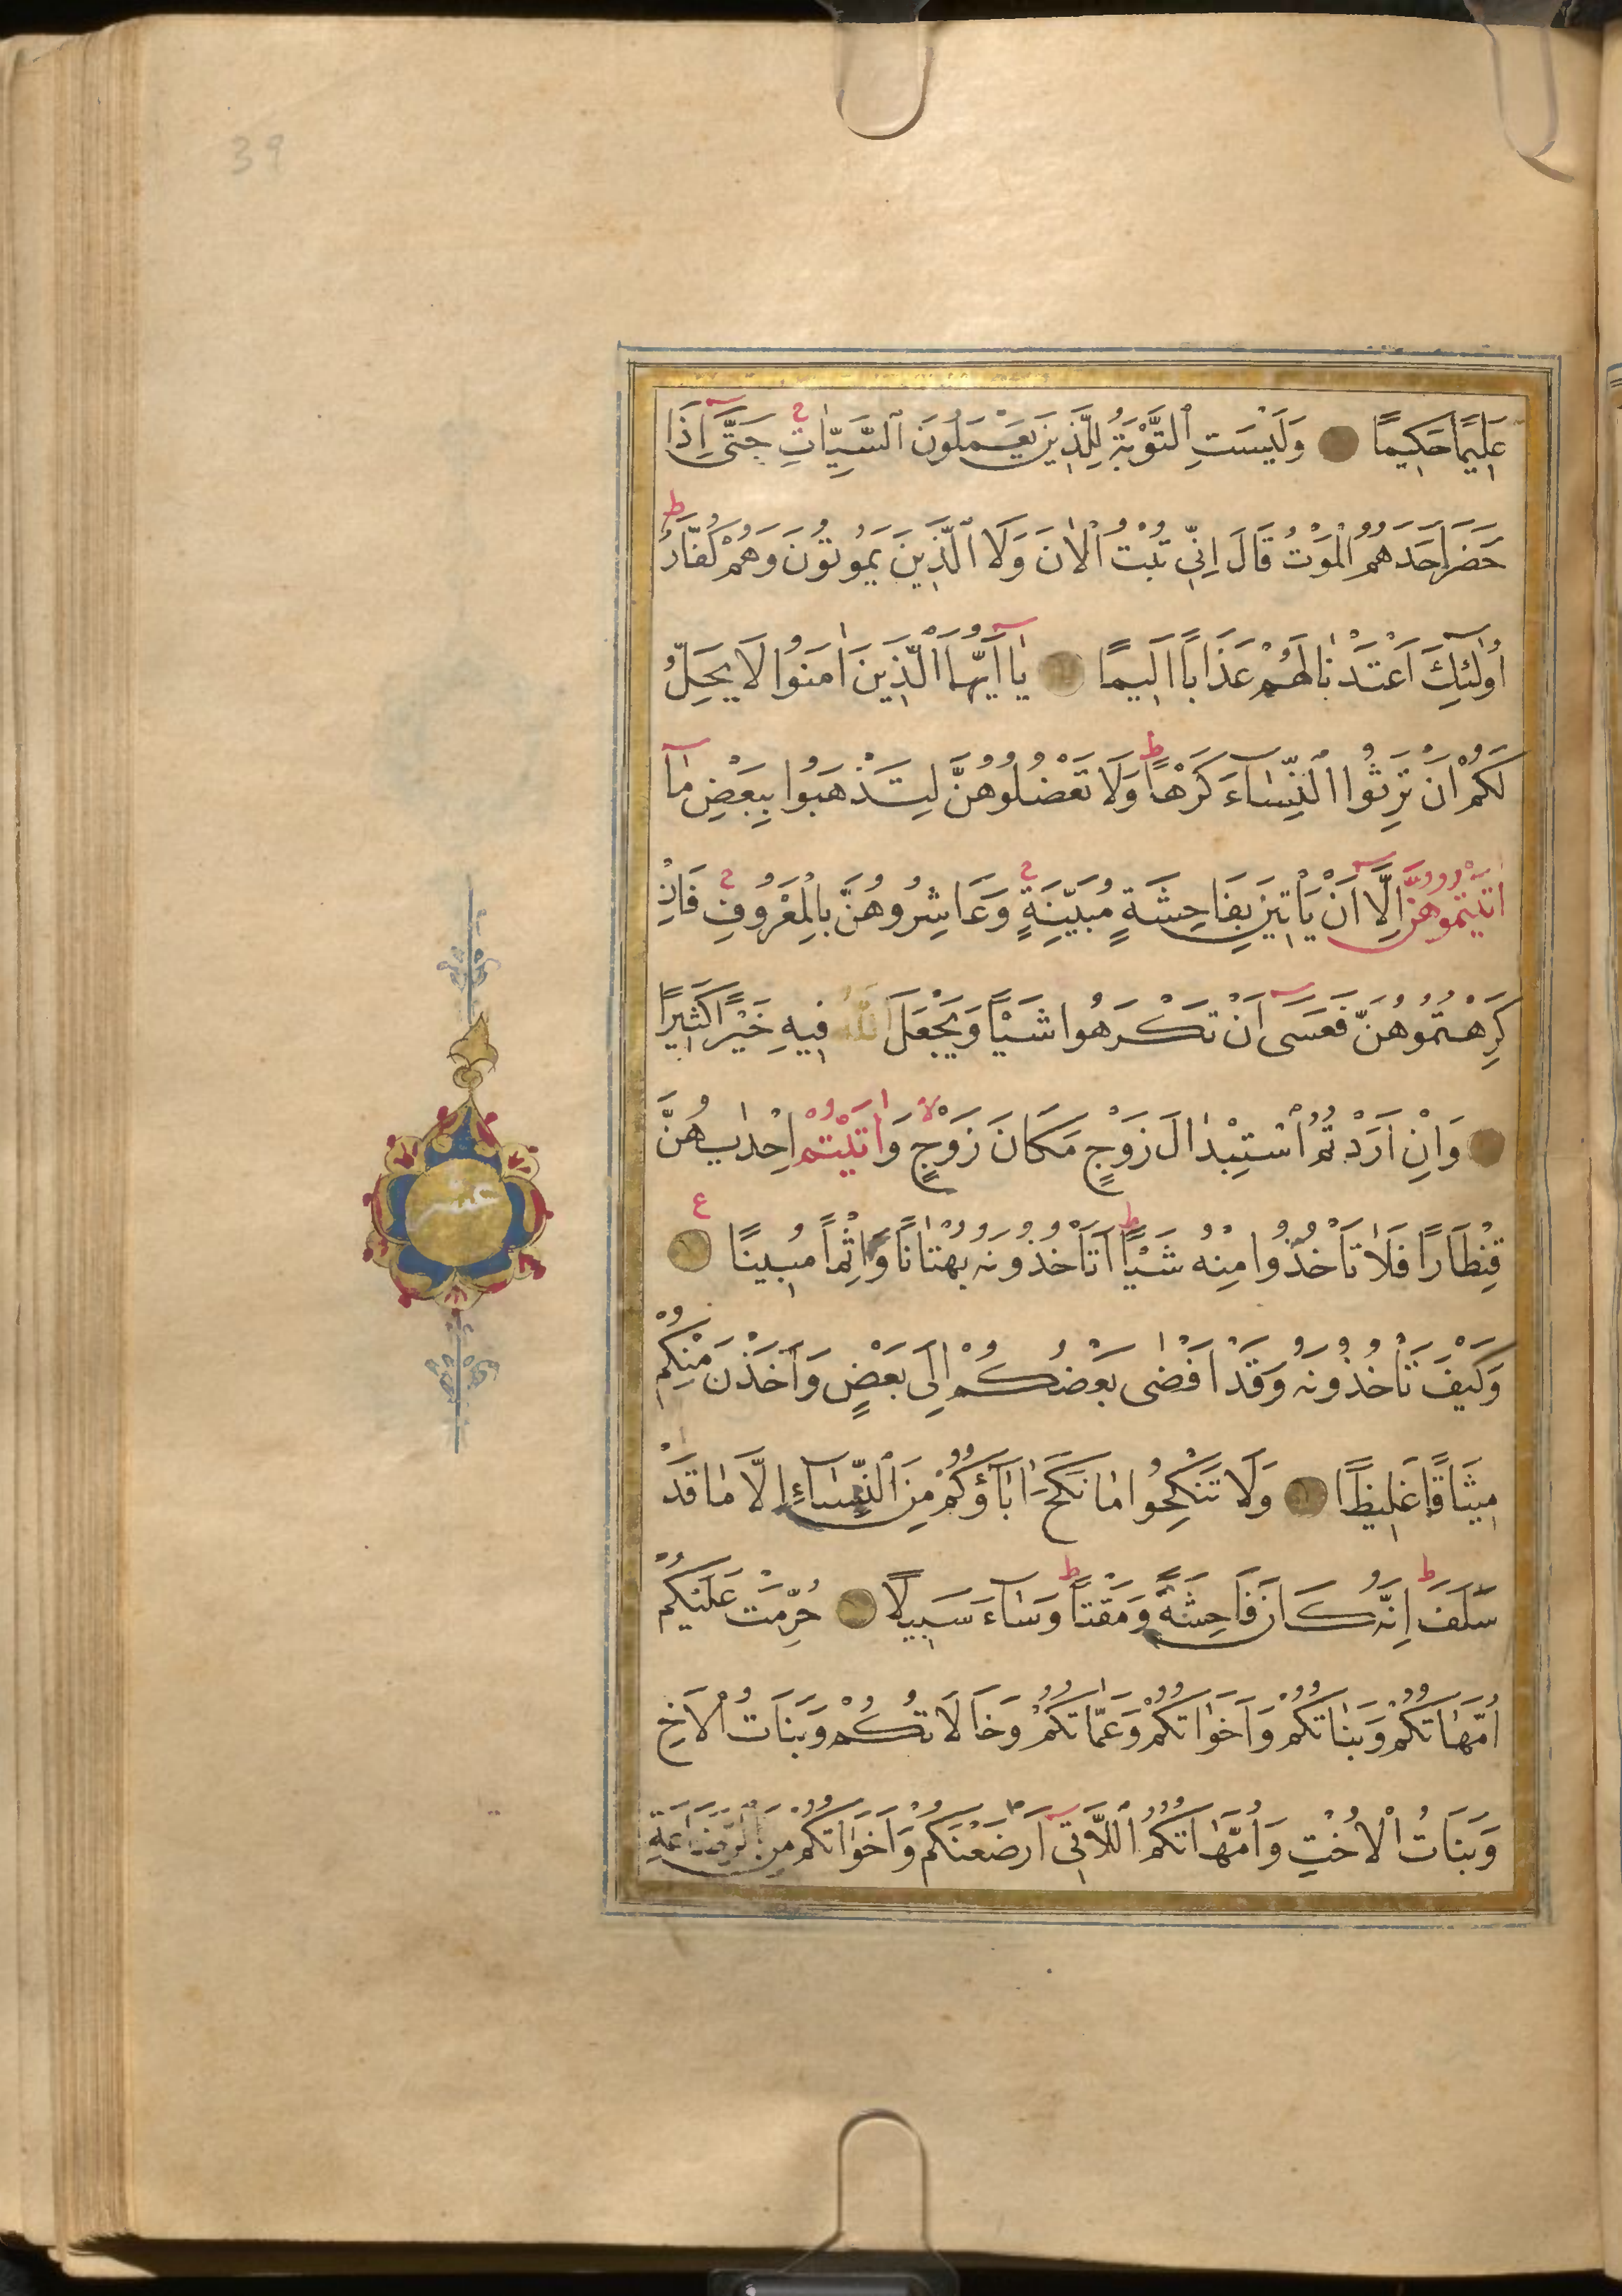 39
عَلِيمًا حَكِيمًا وَلَيْسَتِ ٱلتَّوْبَةُ لِلَّذِينَ يَعْمَلُونَ ٱلسَّيِّاٰتِ حَتَّىٰ اِذَا
حَضَرَ اَحَدَهُمُ الْمَوْتُ قَالَ اِنِّي تُبْتُ الْاٰنَ وَلَا الَّذِينَ يَمُوتُونَ وَهُمْ كُفَّارٌ ط
اُولٰئِكَ اَعْتَدْنَا لَهُمْ عَذَابًا اَلِيمًا يَا اَيُّهَا الَّذِينَ اٰمَنُوا لَا يَحِلُّ
لَكُمْ اَنْ تَرِثُوا النِّسَاءَ كَرْهًا ط وَلَا تَعْضُلُوهُنَّ لِتَذْهَبُوا بِبَعْضِ مَا
اٰتَيْتُمُوهُنَّ اِلَّا اَنْ يَاْتِينَ بِفَاحِشَةٍ مُبَيِّنَةٍ وَعَاشِرُوهُنَّ بِالْمَعْرُوفِ فَاِنْ
كَرِهْتُمُوهُنَّ فَعَسَى اَنْ تَكْرَهُوا شَيْاً وَيَجْعَلَ اللّٰهُ فِيهِ خَيْرًا كَثِيرًا
وَاِنْ اَرَدْتُمُ اسْتِبْدَالَ زَوْجٍ مَكَانَ زَوْجٍ لا وَاٰتَيْتُمْ اِحْدٰيهُنَّ
قِنْطَارًا فَلَا تَاْخُذُوا مِنْهُ شَيْاً ط اَتَاْخُذُونَهُ بُهْتَانًا وَاِثْمًا مُبِينًا ع
وَكَيْفَ تَاْخُذُونَهُ وَقَدْ اَفْضٰى بَعْضُكُمْ اِلَى بَعْضٍ وَاَخَذْنَ مِنْكُمْ
مِيثَاقًا غَلِيظًا وَلَا تَنْكِحُوا مَا نَكَحَ اٰبَاؤُكُمْ مِنَ النِّسَاءِ اِلَّا مَا قَدْ
سَلَفَ ط اِنَّهُ كَانَ فَاحِشَةً وَمَقْتًا ط وَسَاءَ سَبِيلًا حُرِّمَتْ عَلَيْكُمْ
اُمَّهَاتُكُمْ وَبَنَاتُكُمْ وَاَخَوَاتُكُمْ وَعَمَّاتُكُمْ وَخَالَاتُكُمْ وَبَنَاتُ الْاَخِ
وَبَنَاتُ الْاُخْتِ وَاُمَّهَاتُكُمُ اللَّاتِي اَرْضَعْنَكُمْ وَاَخَوَاتُكُمْ مِنَ الرَّضَاعَةِ
عشر